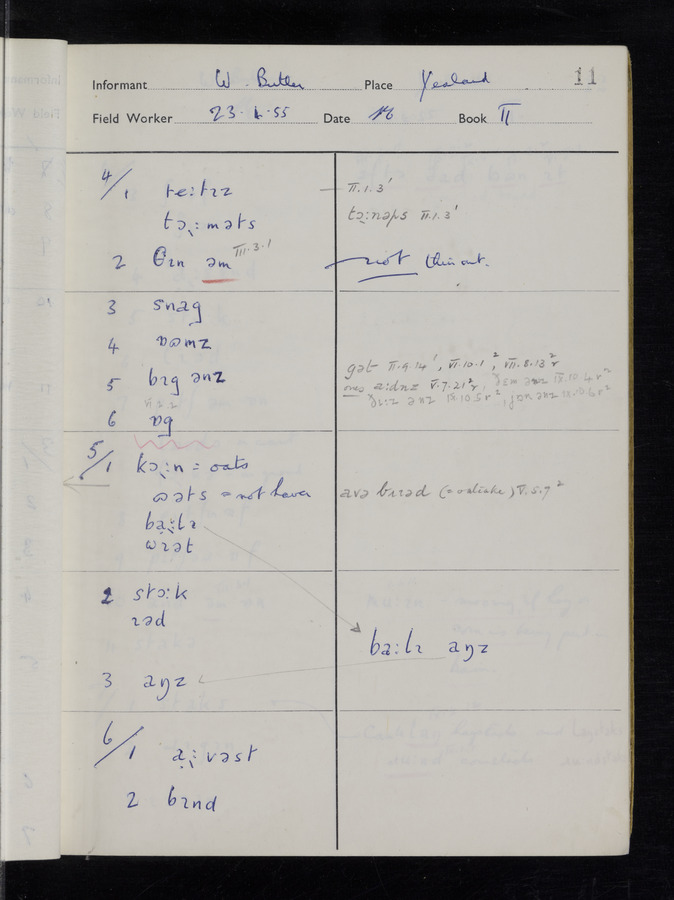 Informant W. Butler Place Yealand 11
Field Worker 23.4.55 Date Book II
4/1 te:tɪz — II.1.3'
tɔ̣:məts tə:nəps II.1.3'
2 θɪn əm III.3.1 — not thin out.
3 snag
4 ɒɷmz
gət II.9.14', VI.10.1², VII.8.13²r
5 bɪg ənz a:dnz V.7.21²r
VI.2.2
6 ɒg
5/1 kɔ̣:n = oats
ɷəts = not haver avə bɪɪəd (= oatcake) V.5.9²
ba:lɪ
wɪət
2 stɔ:k
ɪəd
ba:lɪ aŋz
3 aŋz
6/1 a:vəst
2 bɪnd